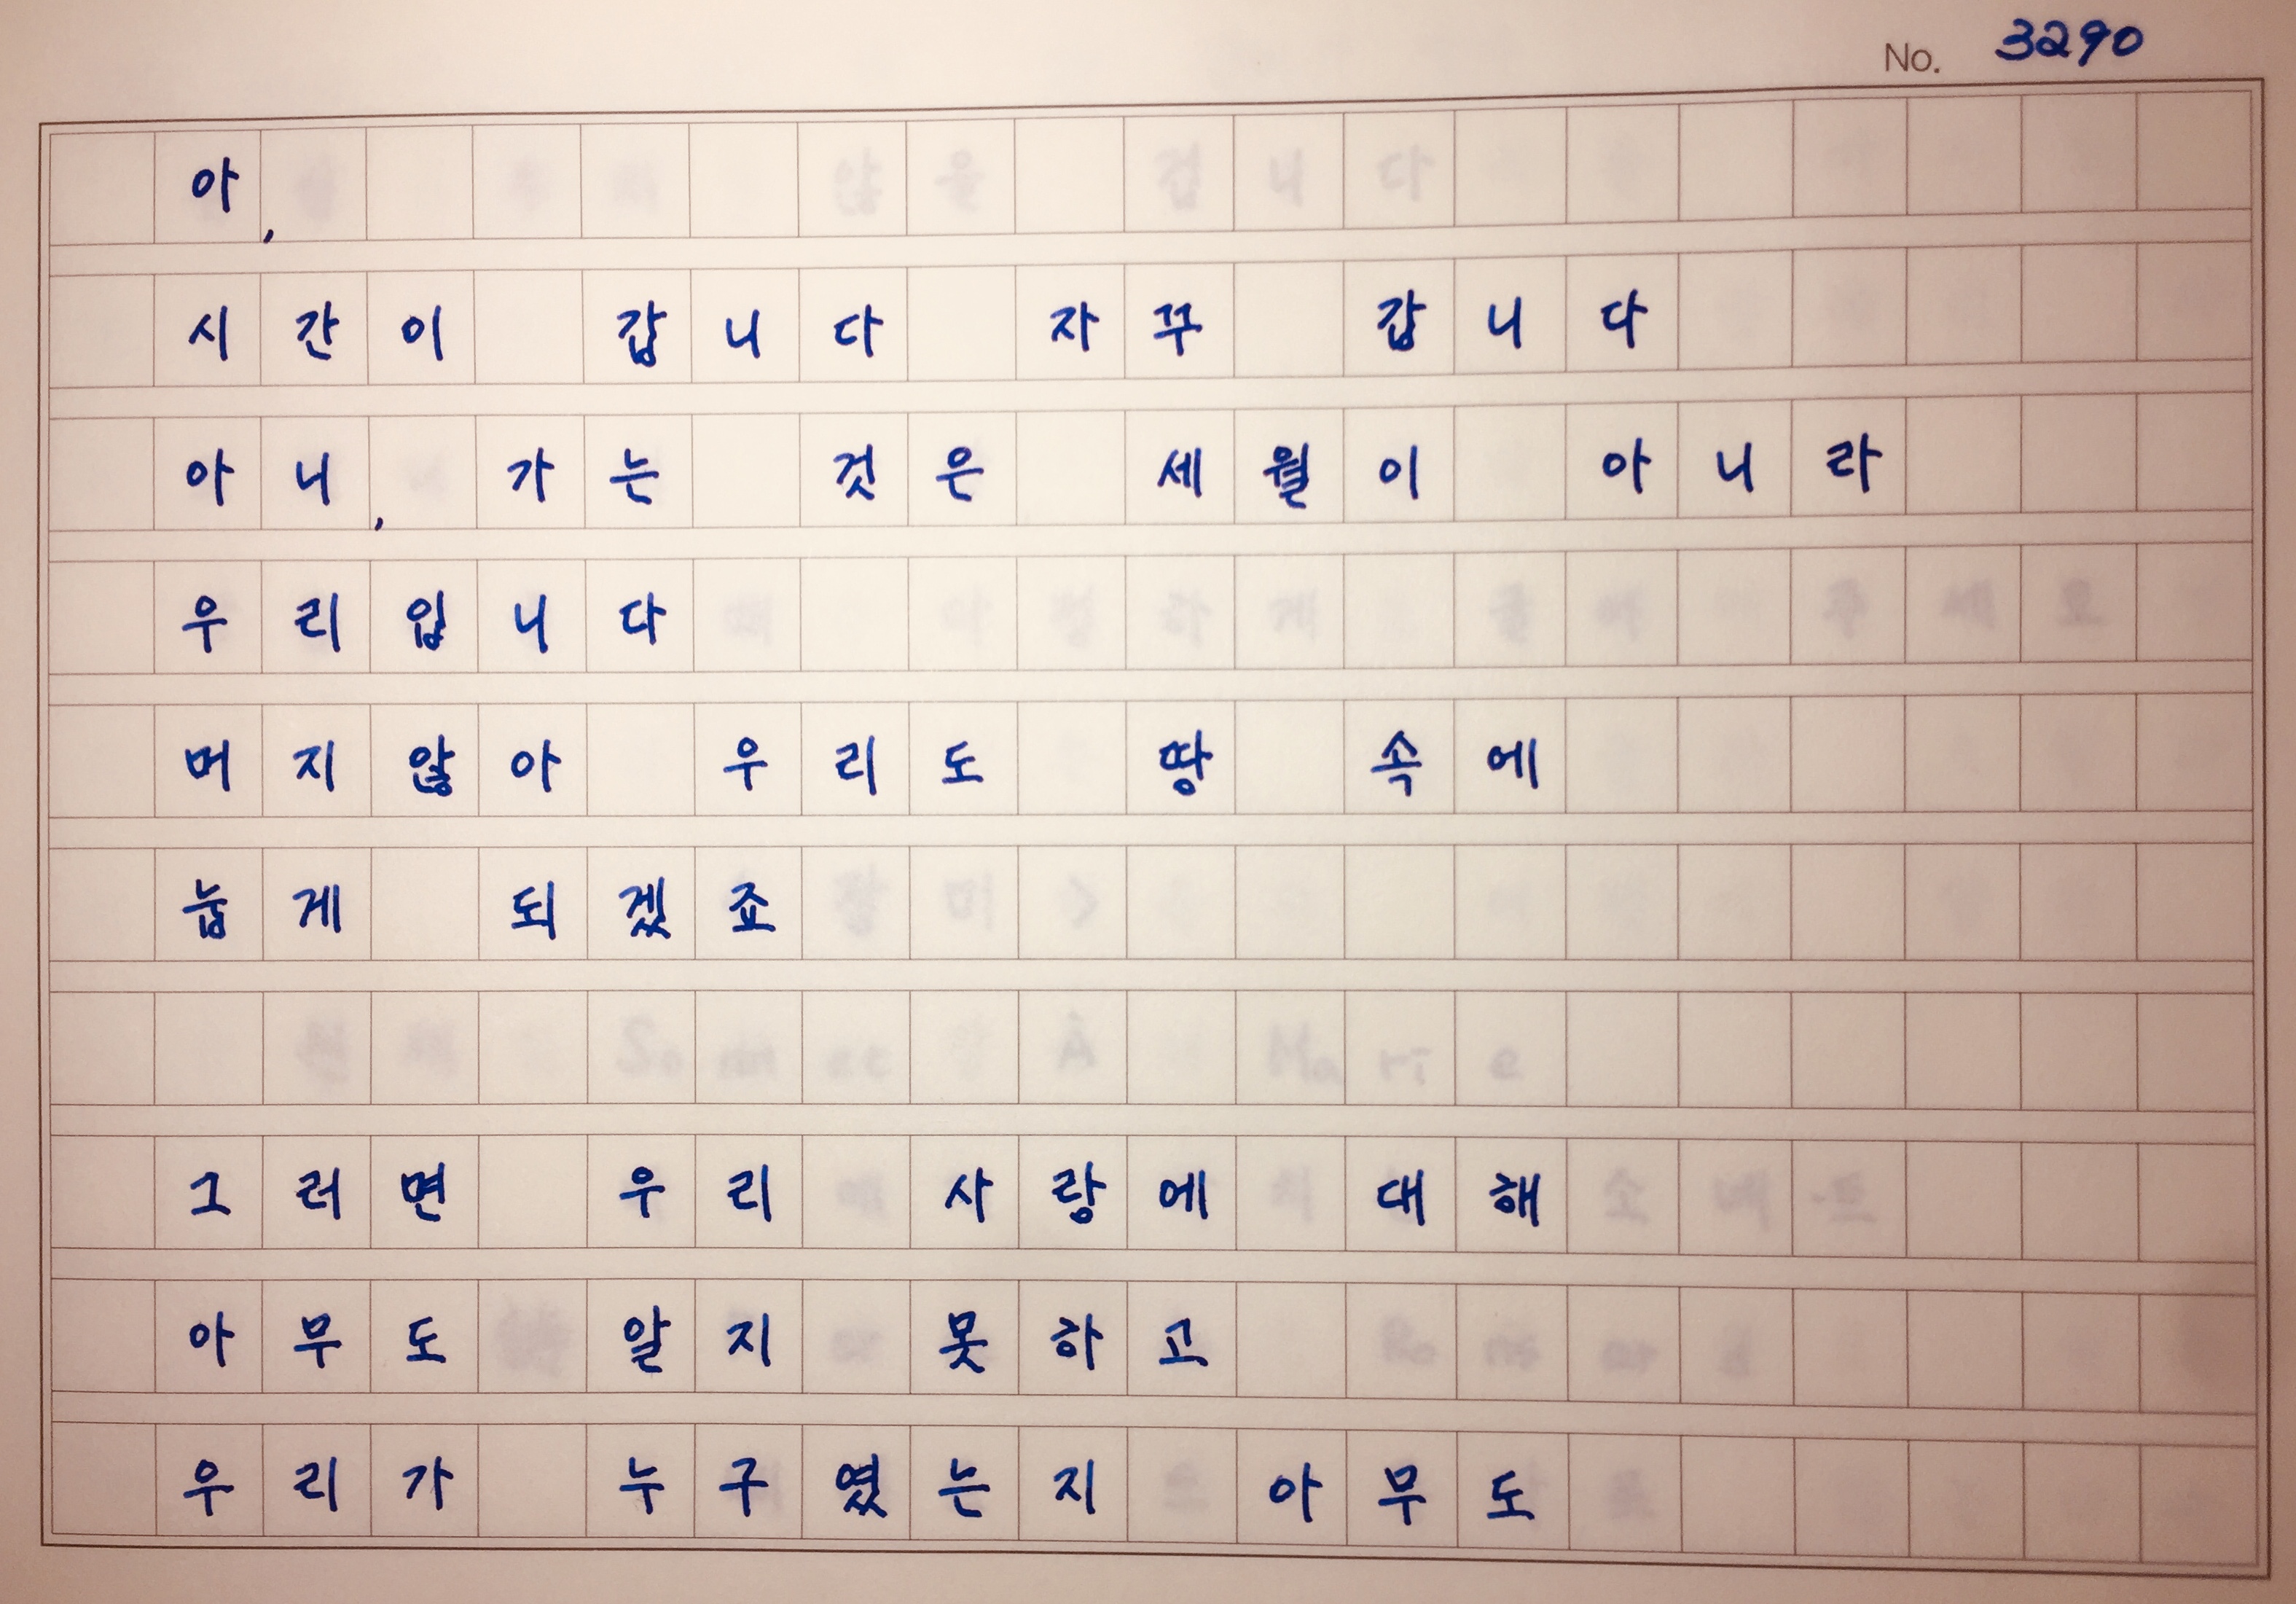 No. 3290
아,
시간이 갑니다 자꾸 갑니다
아니, 가는 것은 세월이 아니라
우리입니다
머지않아 우리도 땅 속에
눕게 되겠죠
그러면 우리 사랑에 대해
아무도 알지 못하고
우리가 누구였는지 아무도